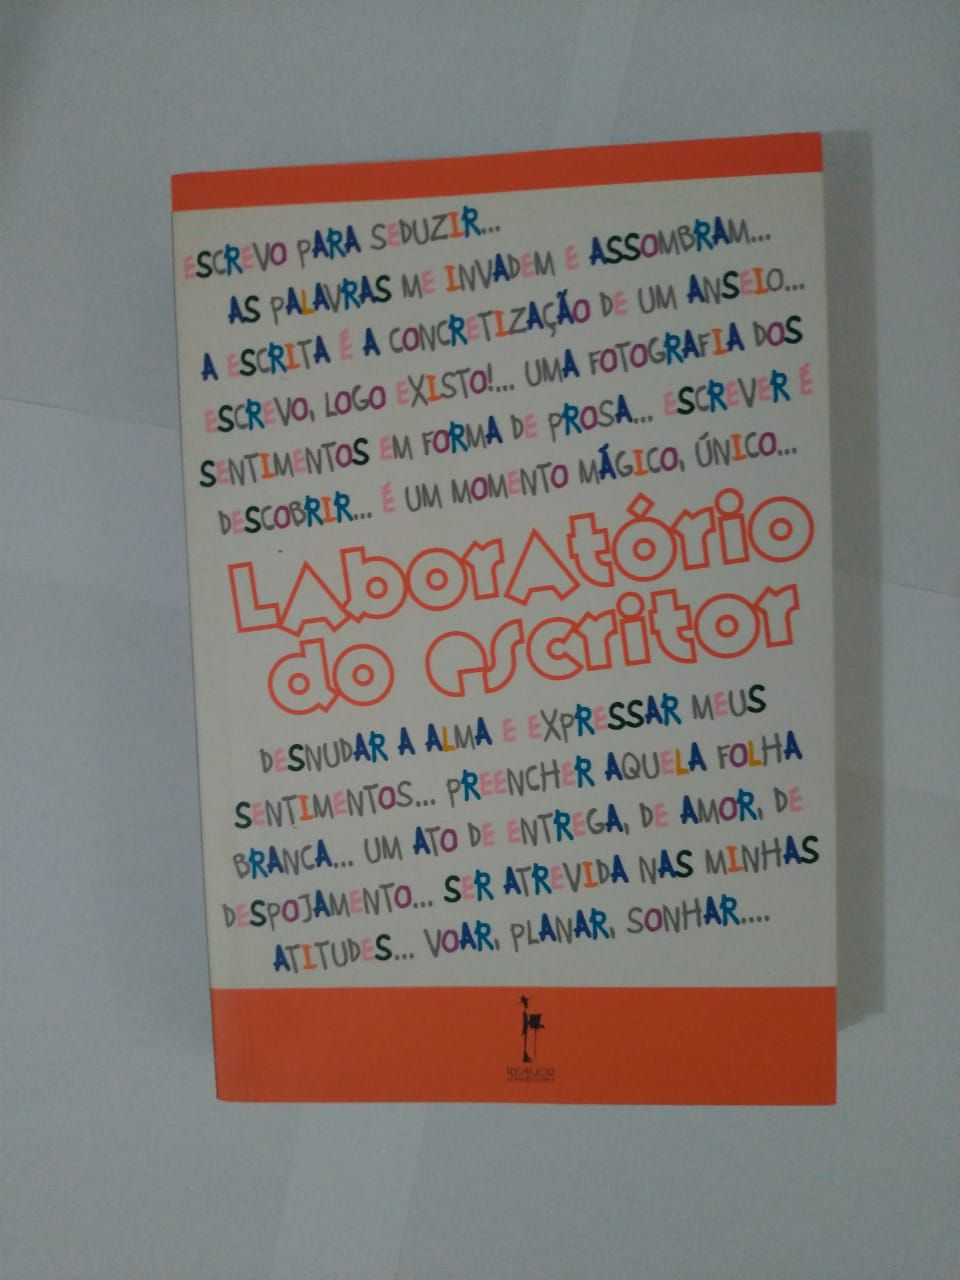 ESCREVO PARA SEDUZIR...
AS PALAVRAS ME INVADEM E ASSOMBRAM...
A ESCRITA É A CONCRETIZAÇÃO DE UM ANSEIO...
ESCREVO, LOGO EXISTO!... UMA FOTOGRAFIA DOS
SENTIMENTOS EM FORMA DE PROSA... ESCREVER É
DESCOBRIR... É UM MOMENTO MÁGICO, ÚNICO...
LAborAtório
do escritor
DESNUDAR A ALMA E EXPRESSAR MEUS
SENTIMENTOS... PREENCHER AQUELA FOLHA
BRANCA... UM ATO DE ENTREGA, DE AMOR, DE
DESPOJAMENTO... SER ATREVIDA NAS MINHAS
ATITUDES... VOAR, PLANAR, SONHAR....